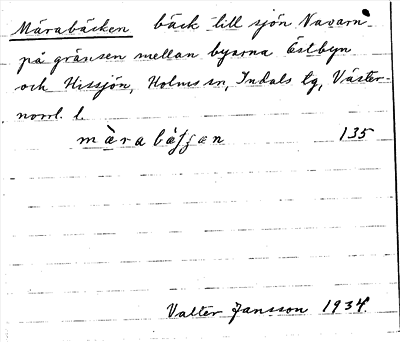 Märabäcken bäck till sjön Navarn
på gränsen mellan byarna Östbyn
och Hissjön, Holms sn, Indals tg, Väster-
norrl. l.
mära 135
Valter Jansson 1934.